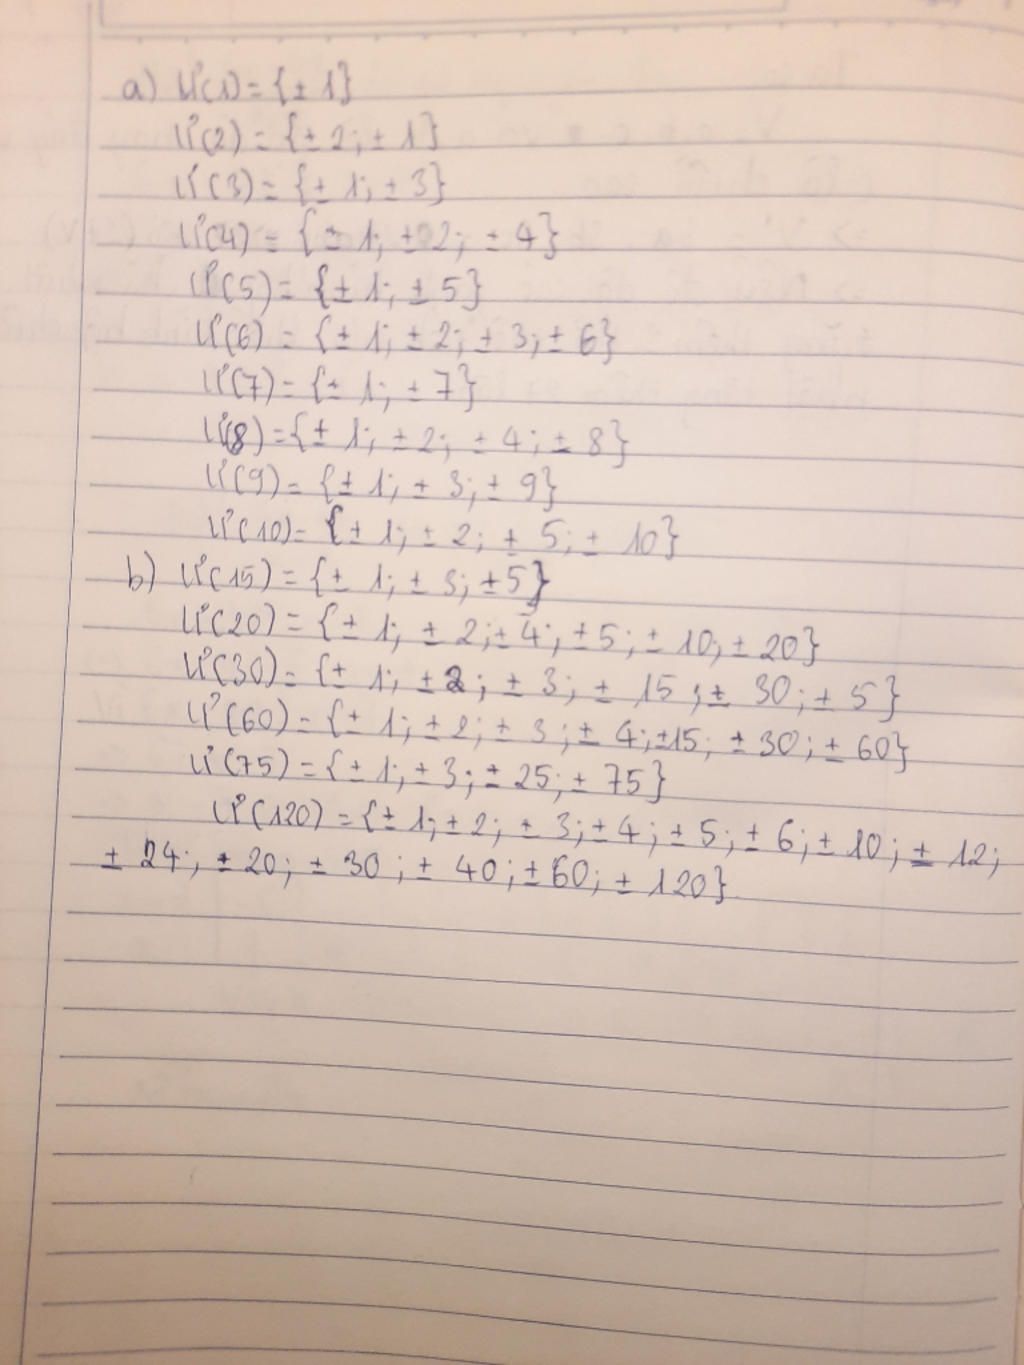 a) Ư(1) = {± 1}
Ư(2) = {± 2; ± 1}
Ư(3) = {± 1; ± 3}
Ư(4) = {± 1; ± 2; ± 4}
Ư(5) = {± 1; ± 5}
Ư(6) = {± 1; ± 2; ± 3; ± 6}
Ư(7) = {± 1; ± 7}
Ư(8) = {± 1; ± 2; ± 4; ± 8}
Ư(9) = {± 1; ± 3; ± 9}
Ư(10) = {± 1; ± 2; ± 5; ± 10}
b) Ư(15) = {± 1; ± 3; ±5}
Ư(20) = {± 1; ± 2; ± 4; ± 5; ± 10; ± 20}
Ư(30) = {± 1; ± 2; ± 3; ± 15; ± 30; ± 5}
Ư(60) = {± 1; ± 2; ± 3; ± 4; ±15; ± 30; ± 60}
Ư(75) = {± 1; ± 3; ± 25; ± 75}
Ư(120) = {± 1; ± 2; ± 3; ± 4; ± 5; ± 6; ± 10; ± 12;
± 24; ± 20; ± 30; ± 40; ± 60; ± 120}